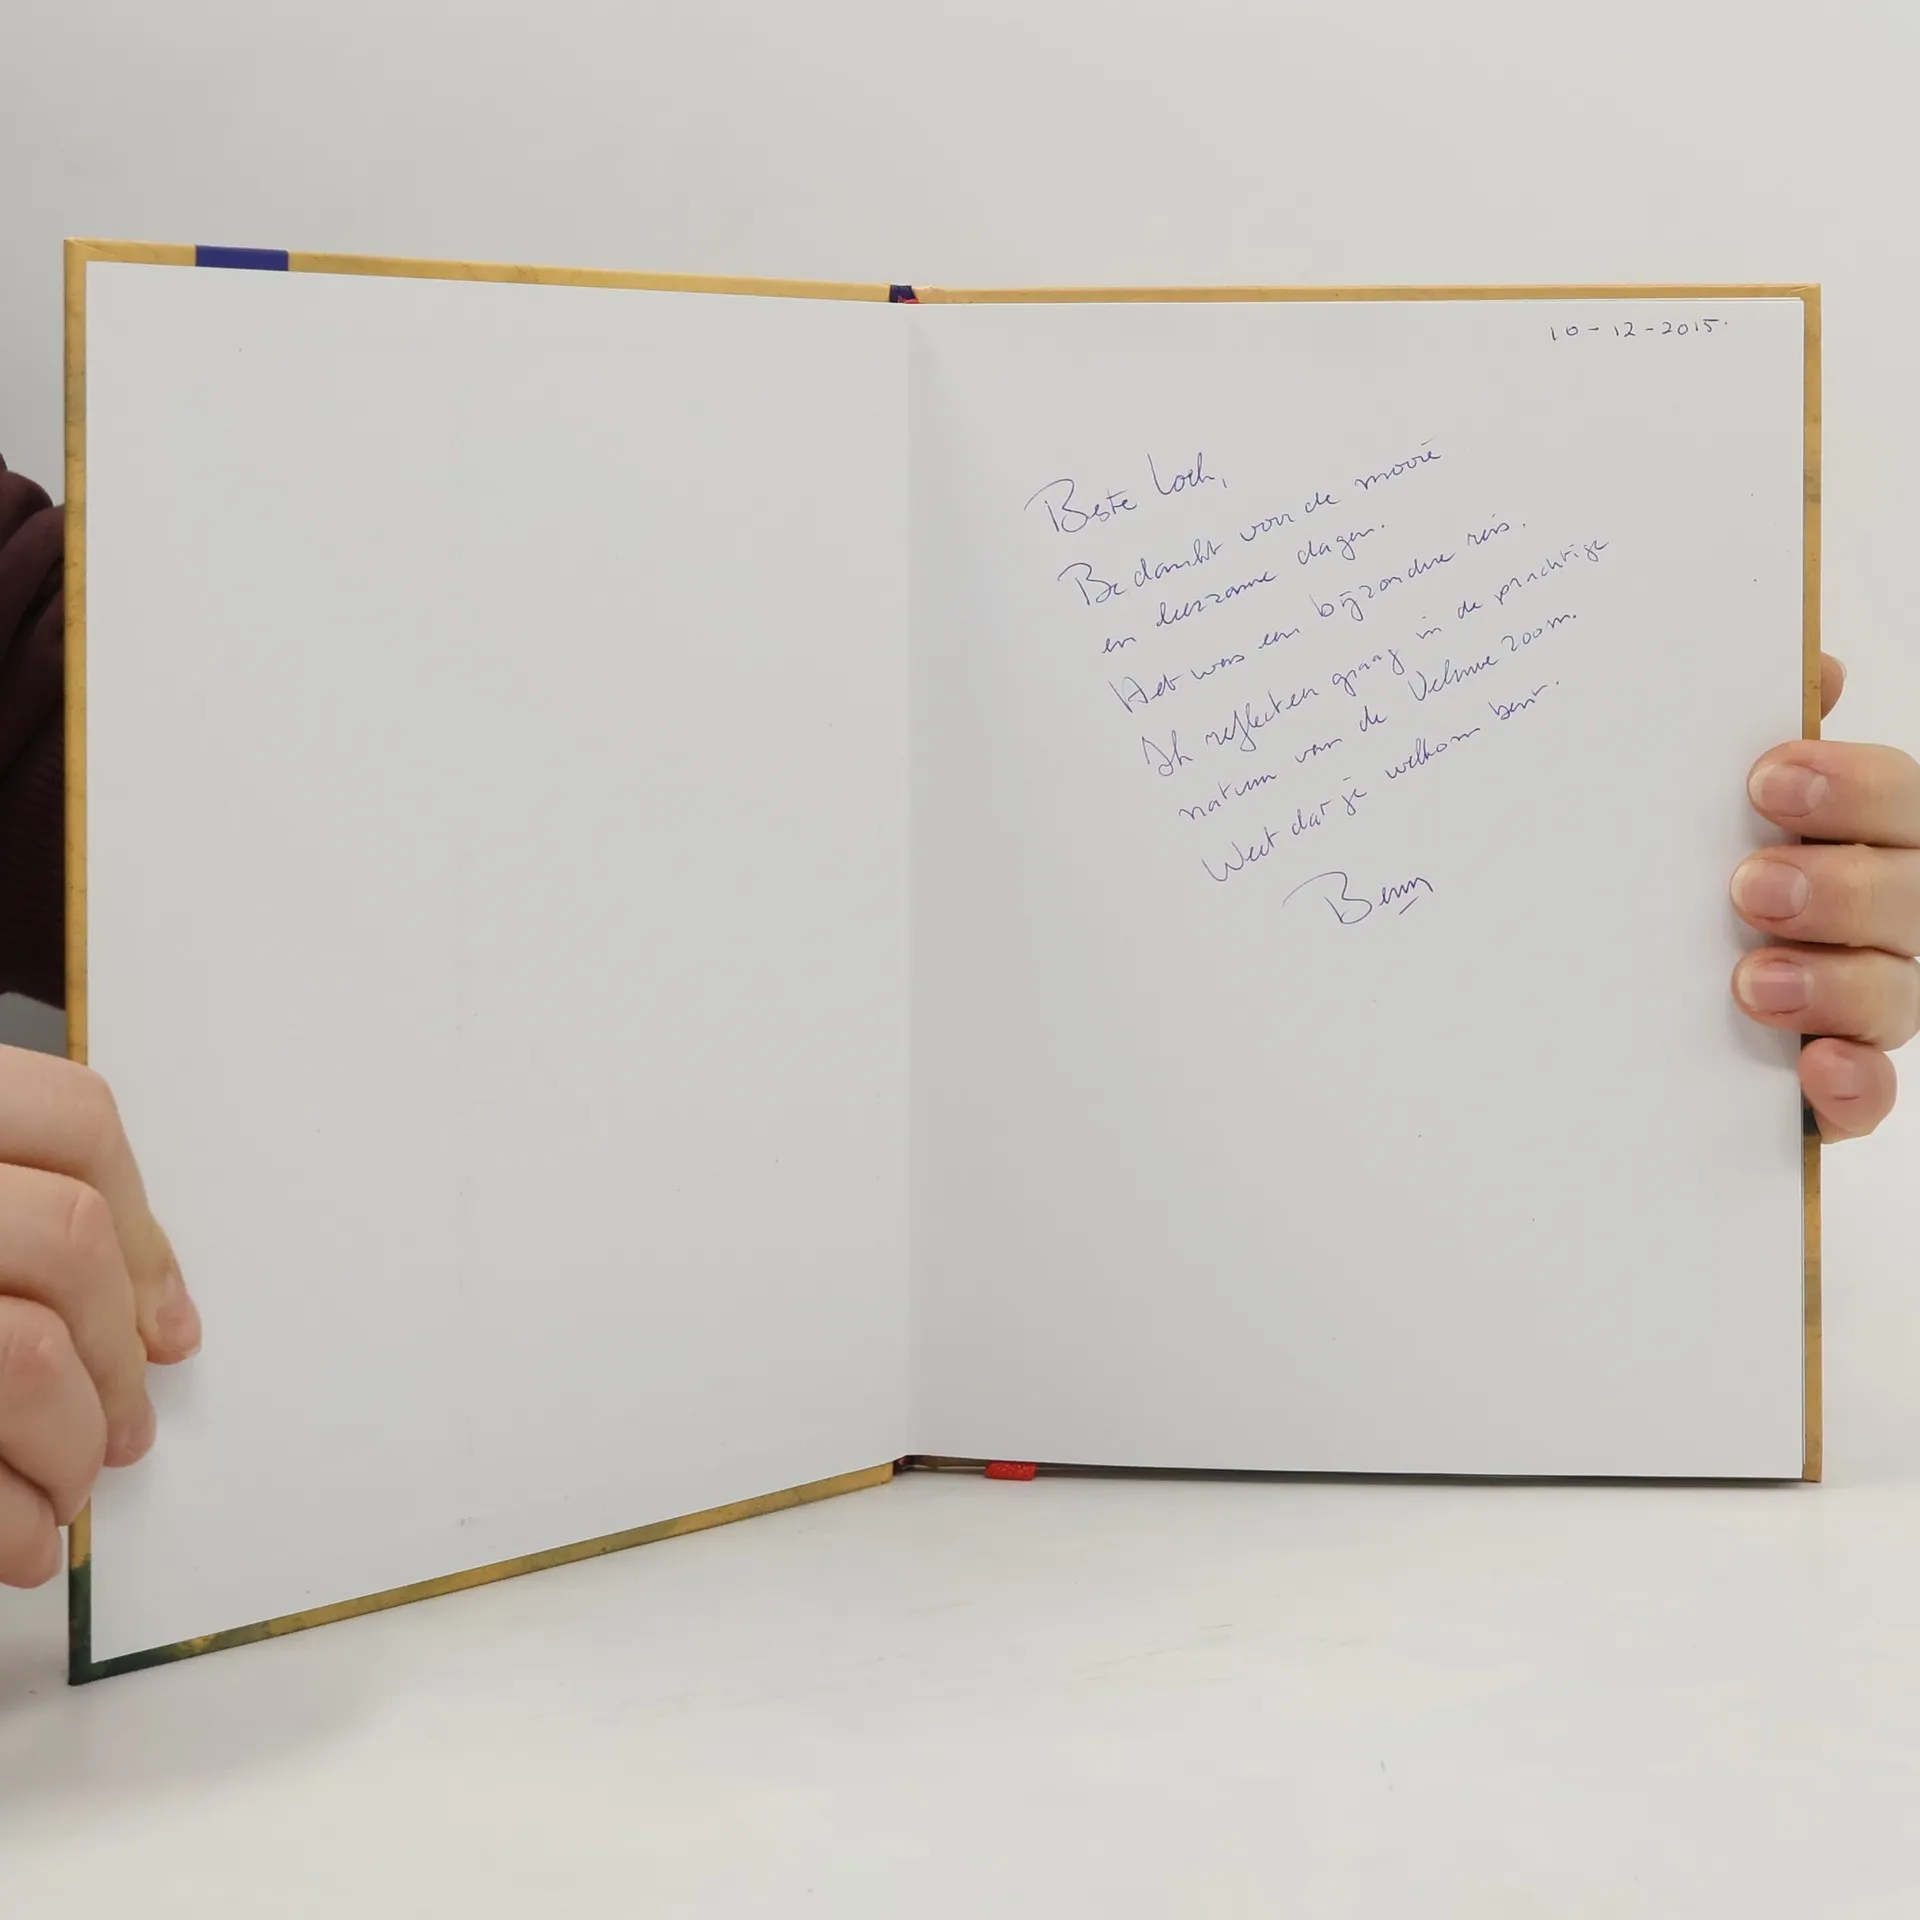 10-12-2015.
Beste
Bedankt voor de mooie
en leerzame dagen.
Het was een bijzondere reis.
Ik reflecteer graag in de prachtige
natuur van de Veluwe zoom.
Weet dat je welkom bent.